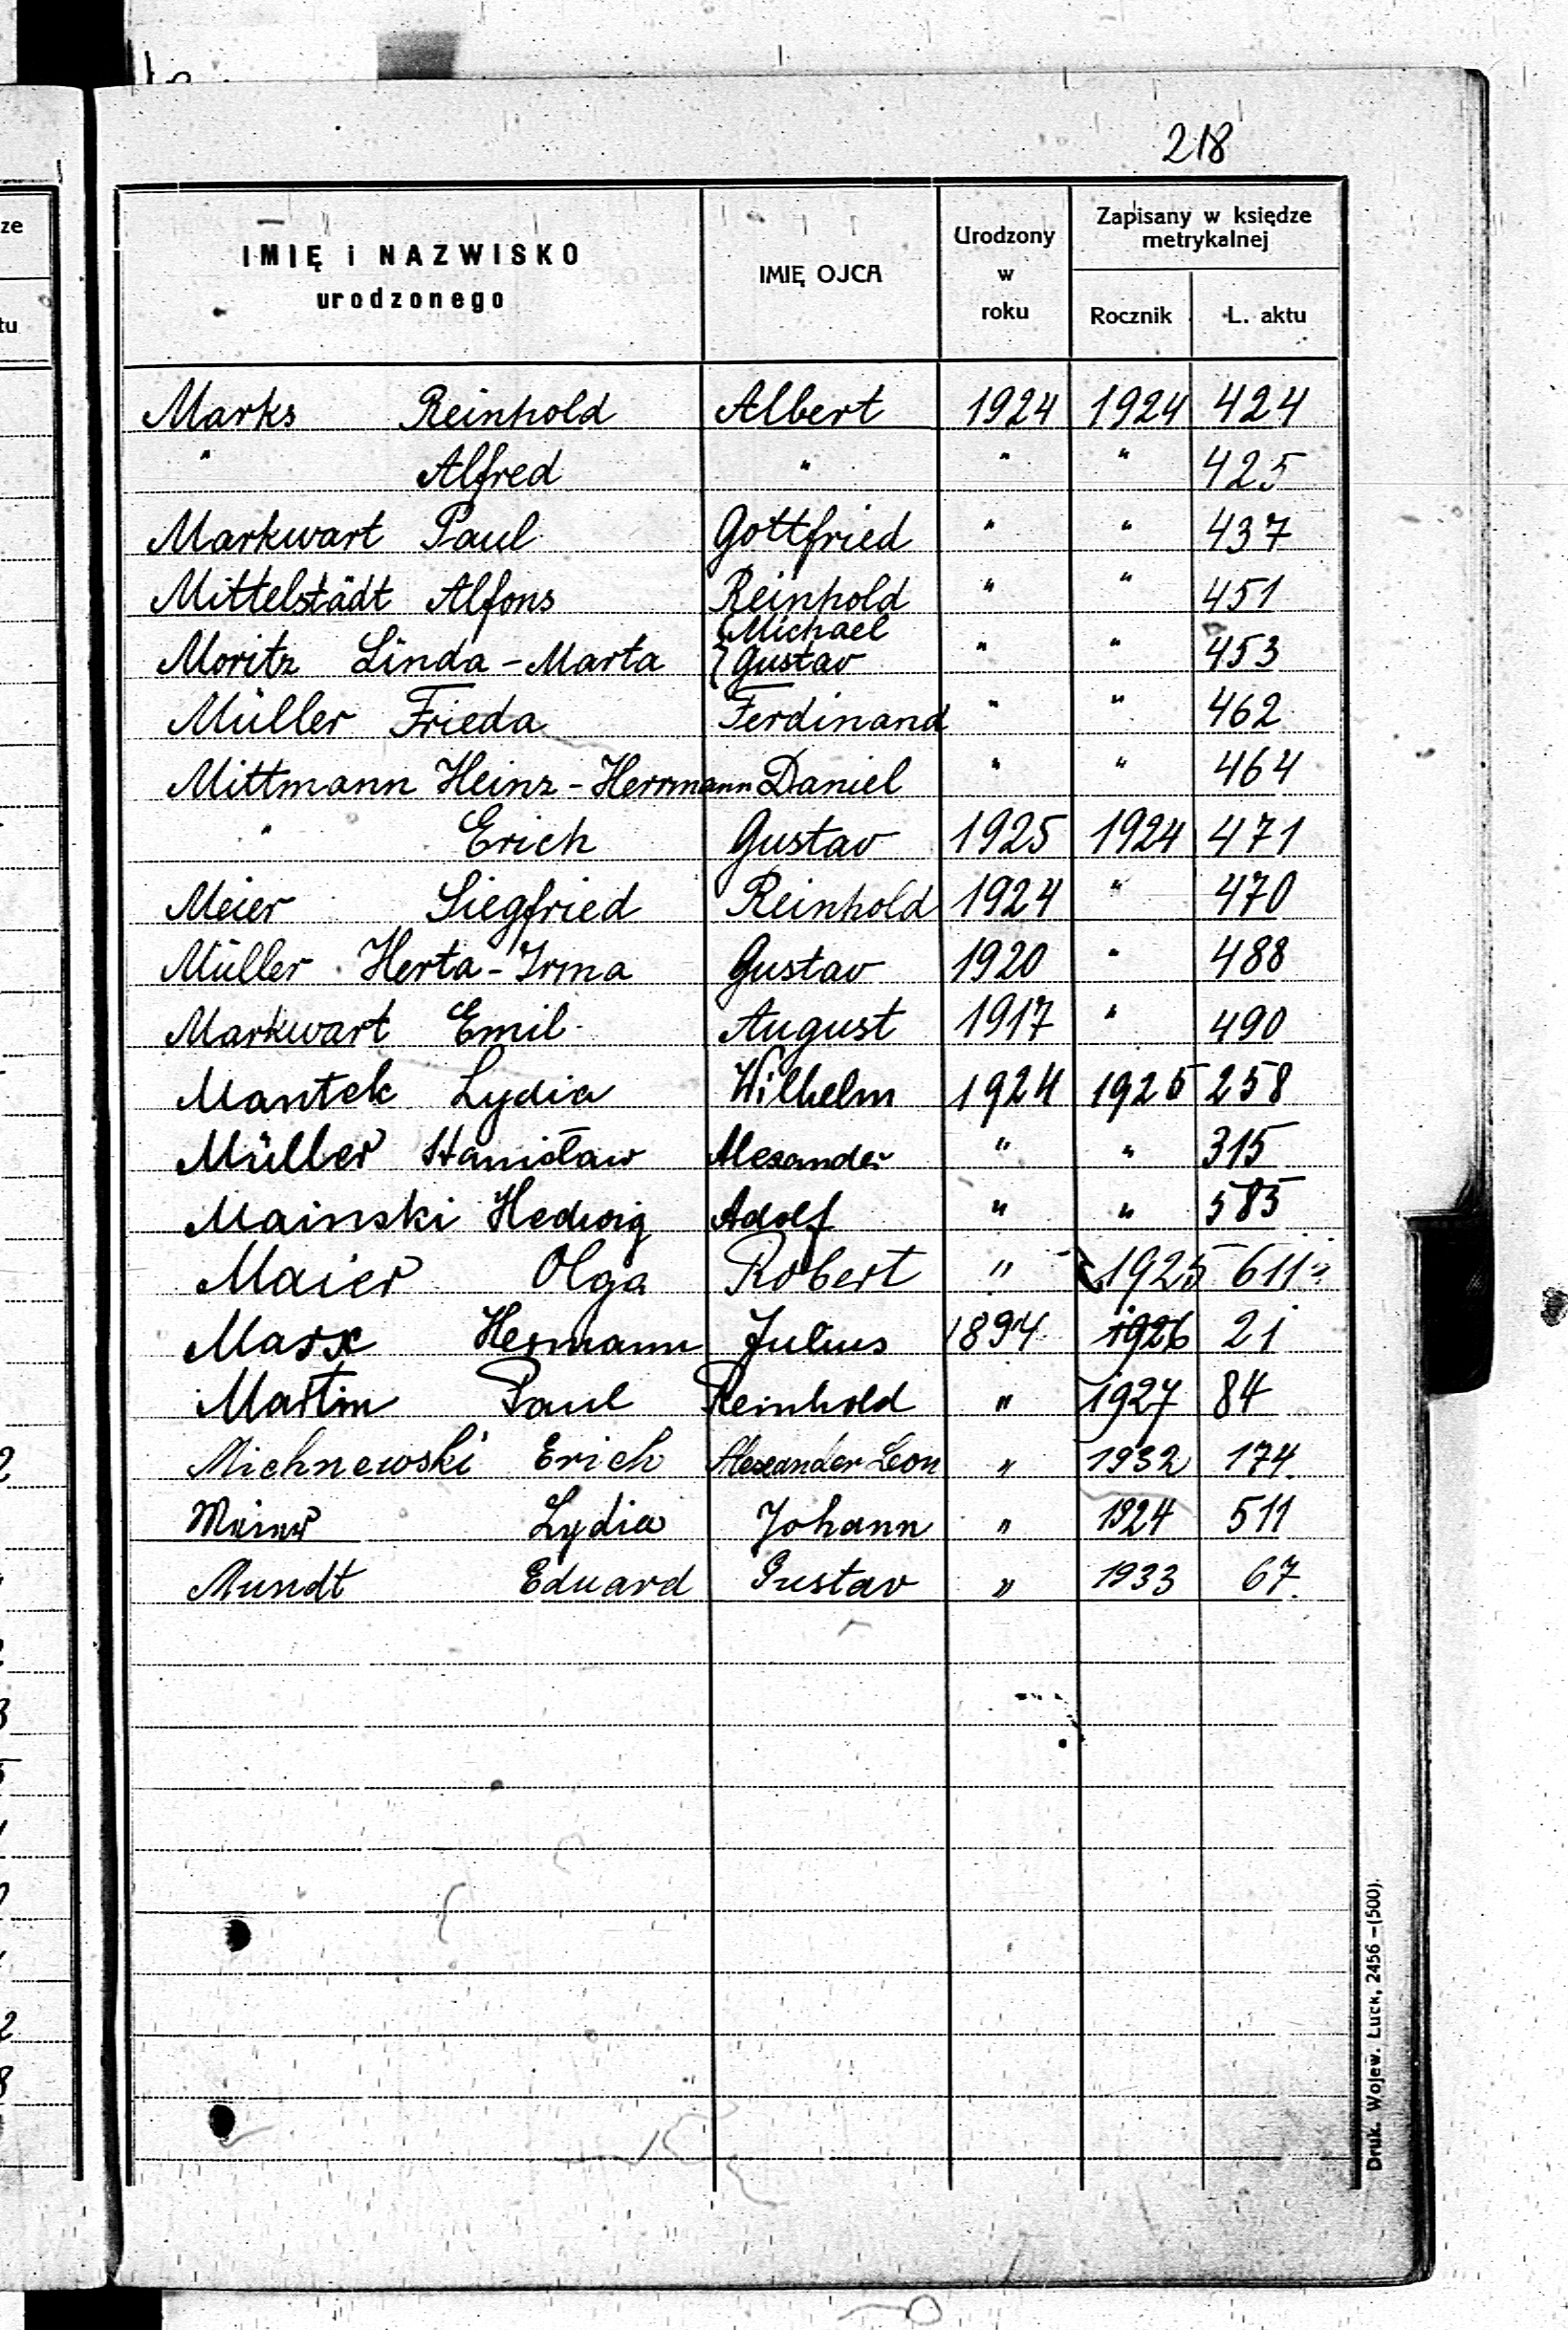 218
IMIĘ i NAZWISKO urodzonego | IMIĘ OJCA | Urodzony w roku | Zapisany w księdze metrykalnej
Rocznik | L. aktu
Marks Reinhold | Albert | 1924 | 1924 | 424
" Alfred | " | " | " | 425
Markwart Paul | Gottfried | " | " | 437
Mittelstädt Alfons | Reinhold | " | " | 451
Moritz Linda-Marta | { Michael Gustav | " | " | 453
Müller Frieda | Ferdinand | " | " | 462
Mittmann Heinz-Herrmann | Daniel | " | " | 464
" Erich | Gustav | 1925 | 1924 | 471
Meier Siegfried | Reinhold | 1924 | " | 470
Müller Herta-Irma | Gustav | 1920 | " | 488
Markwart Emil | August | 1917 | " | 490
Mantek Lydia | Wilhelm | 1924 | 1925 | 258
Müller Stanisław | Alexander | " | " | 315
Mainski Hedwig | Adolf | " | " | 585
Maier Olga | Robert | " | 1925 | 611
Marx Hermann | Julius | 1894 | 1926 | 21
Martin Paul | Reinhold | " | 1927 | 84
Michnewski Erich | Alexander Leon | " | 1932 | 174.
Lydia | Johann | " | 1924 | 511
Mundt Eduard | Gustav | " | 1933 | 67.
Druk. Wojew. Łuck, 2456 —(500).
ze
tu